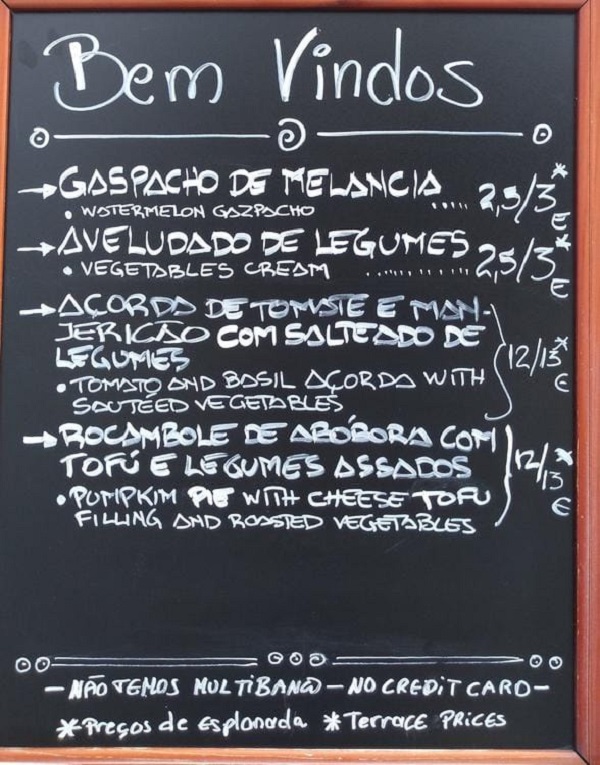 Bem Vindos
→ GASPACHO DE MELANCIA ..... 2,5/3* €
• WATERMELON GAZPACHO
→ AVELUDADO DE LEGUMES 2,5/3* €
• VEGETABLES CREAM ........
→ AÇORDA DE TOMATE E MAN-
JERICÃO COM SALTEADO DE
LEGUMES 12/13* €
• TOMATO AND BASIL AÇORDA WITH
SAUTÉED VEGETABLES
→ ROCAMBOLE DE ABÓBORA COM
TOFÚ E LEGUMES ASSADOS 12/13* €
• PUMPKIM PIE WITH CHEESE TOFU
FILLING AND ROASTED VEGETABLES
- NÃO TEMOS MULTIBANCO - NO CREDIT CARD -
* Preços de esplanada * Terrace Prices